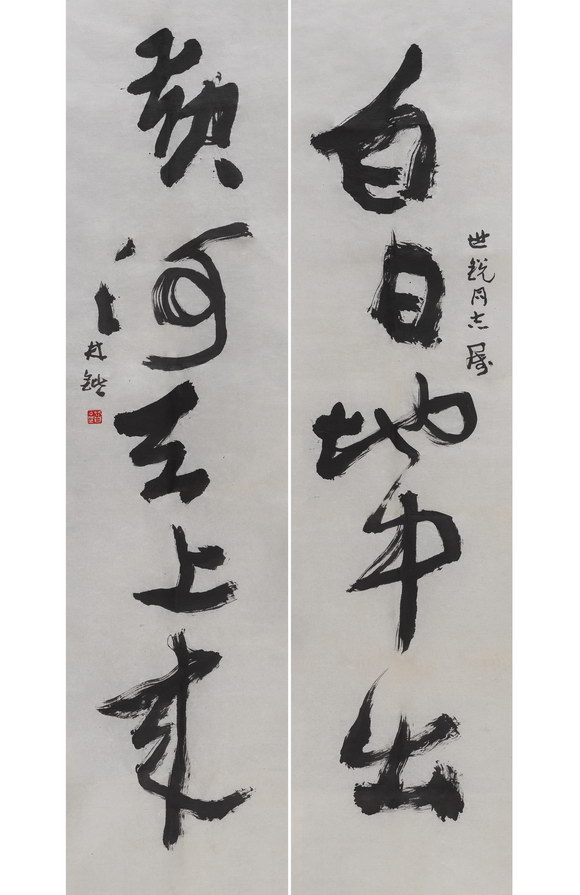 白日地中出
世锐同志属
黄河天上来
林锴